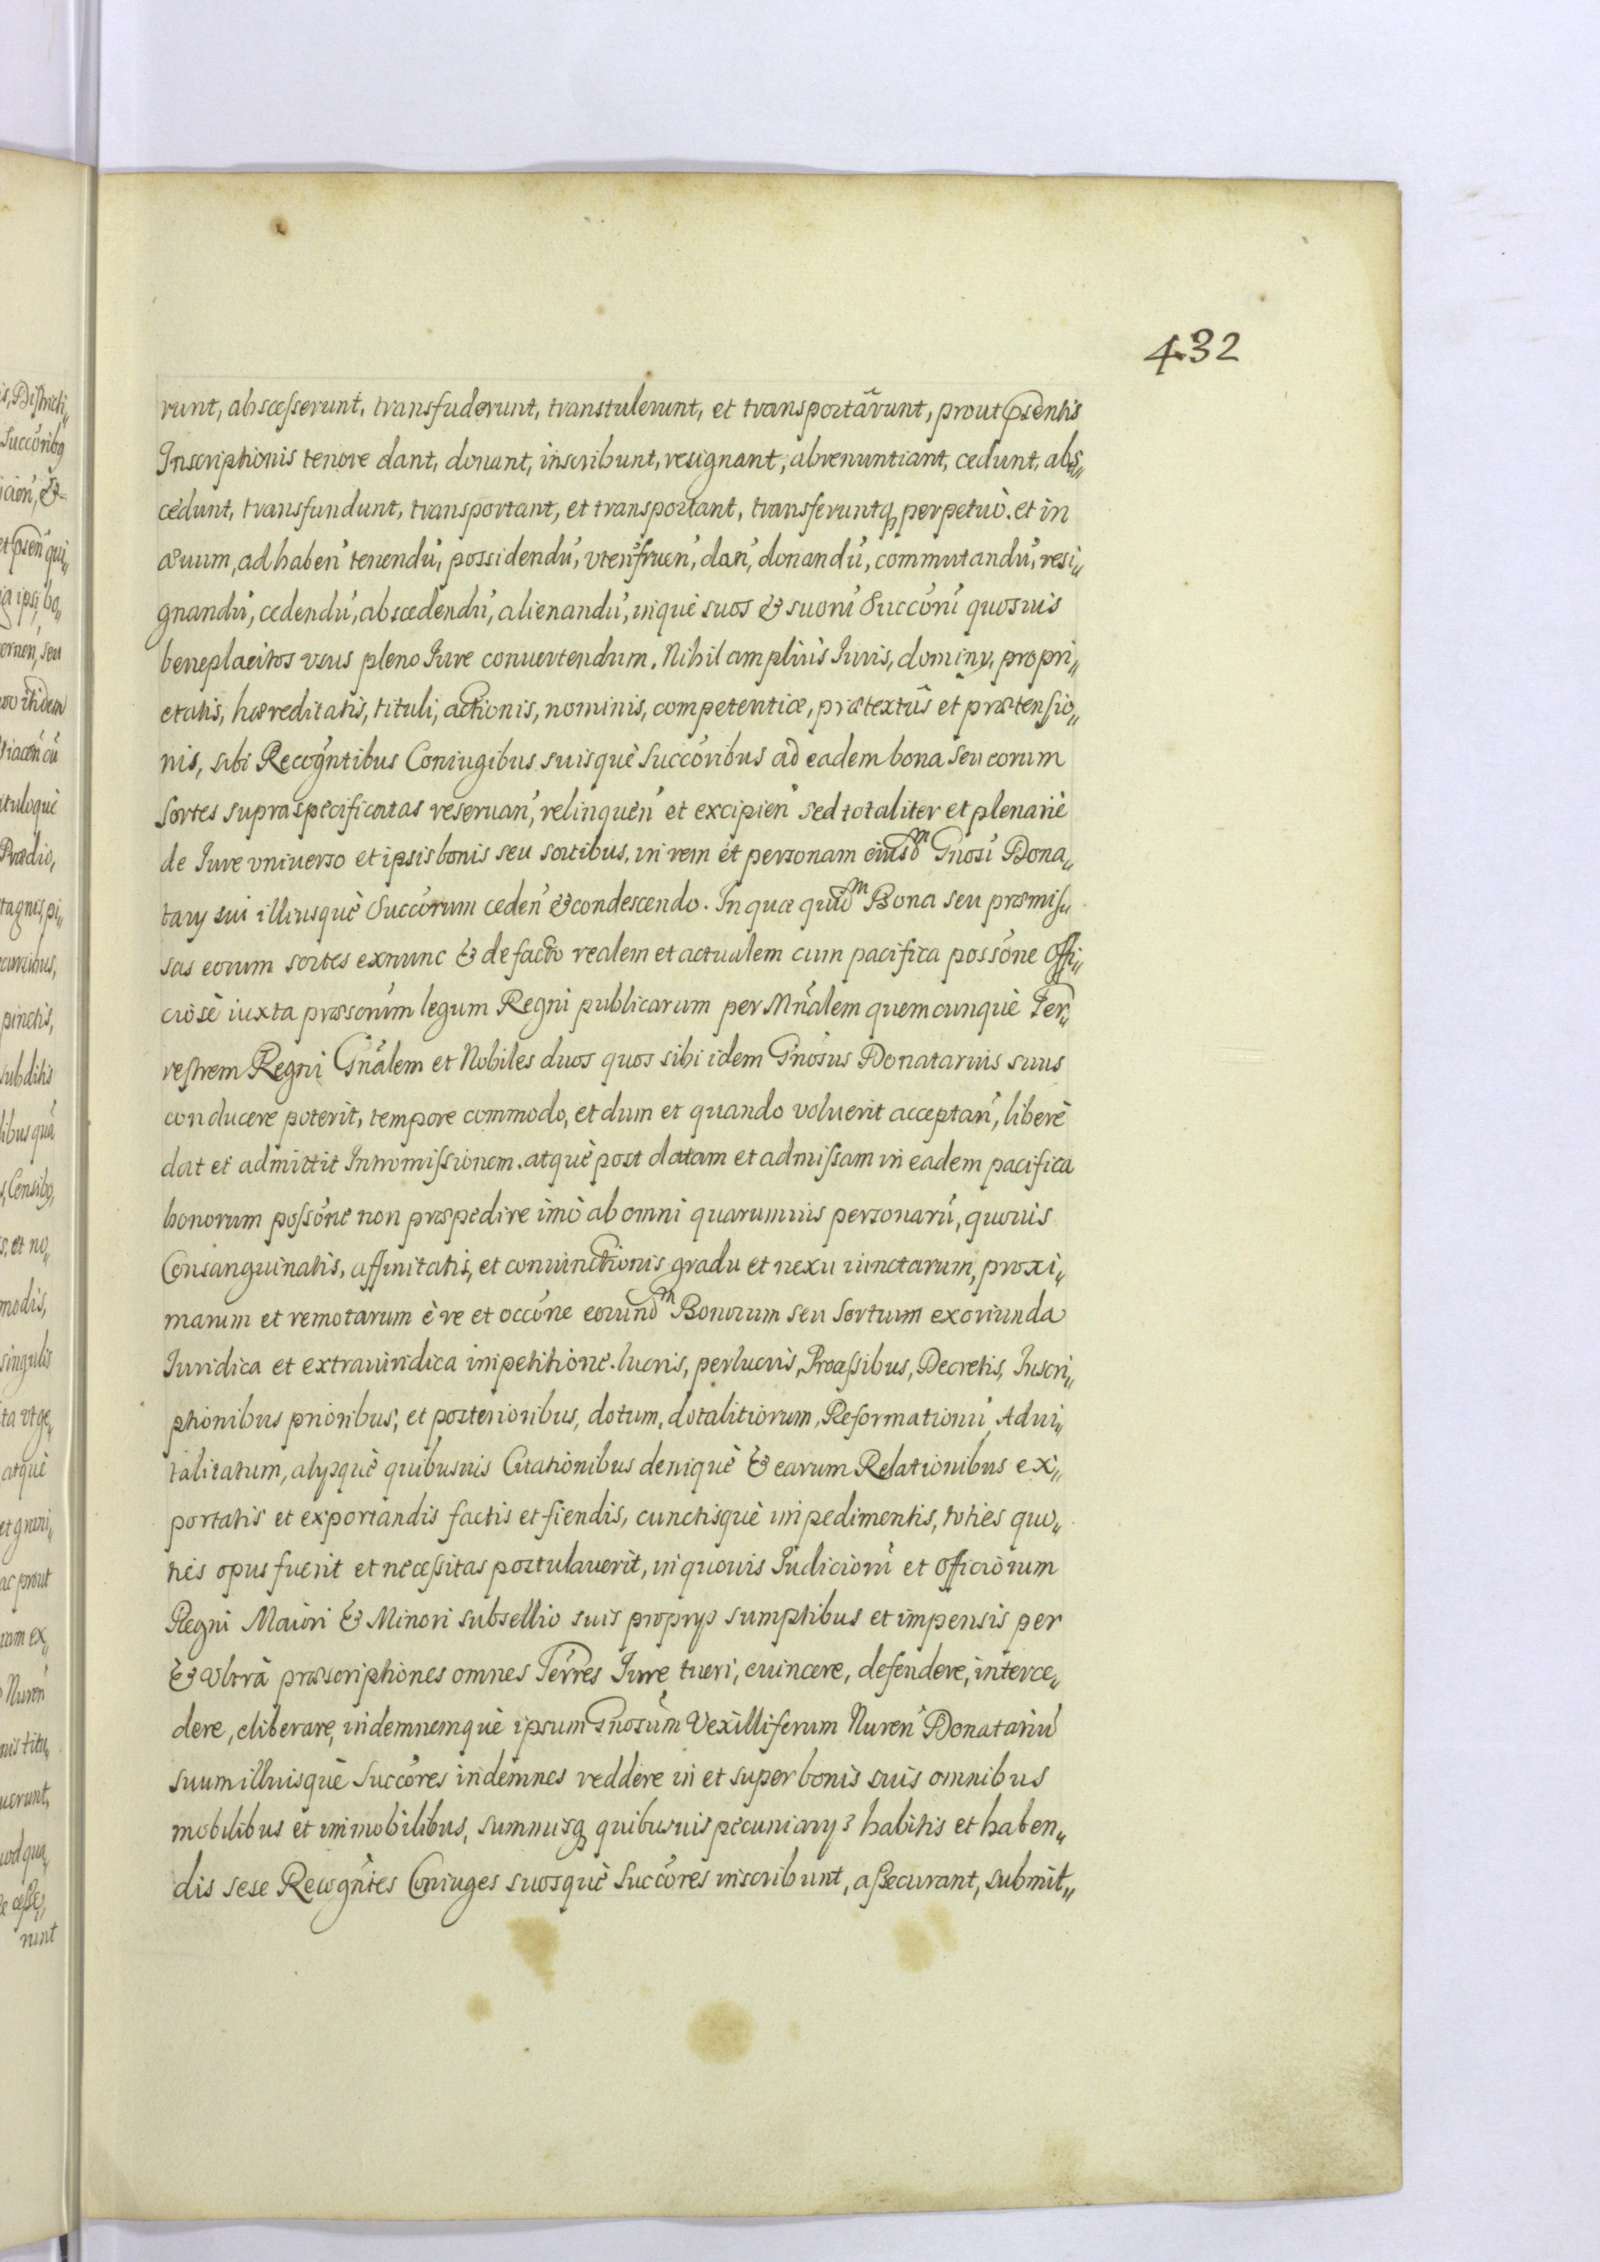 432
runt, abscesserunt, transfuderunt, transtulerunt, et transportârunt, prout psentis
Inscriptionis tenore dant, donant, inscribunt, resignant, abrenuntiant, cedunt, abs„
cedunt, transfundunt, transportant, et transportant, transferuntq₃ perpetuò. et in
æuum, ad haben' tenendu', possidendu', vten' fruen', dan', donandu', commutandu', resi„
gnandu', cedendu', abscedendu', alienandu', inquè suos & suoru' Succóru' quosuis
beneplacitos vsus pleno Iure conuertendum. Nihil ampliùs Iuris, dominÿ, propri„
etatis, hæreditatis, tituli, actionis, nominis, competentiæ, prætextûs et prætensio„
nis, sibi Recogńtibus Coniugibus suisquè Succóribus ad eadem bona seu eorum
sortes supraspecificatas reseruan', relinquen' et excipien' sed totaliter et plenariè
de Iure vniuerso et ipsis bonis seu sortibus, in rem et personam eiusdᵐ Gńosi Dona„
tarÿ sui illiusquè Succórum ceden' & condescendo. In quæ quidᵐ Bona seu præmis„
sas eorum sortes exnunc & de facto realem et actualem cum pacifica possóne Offi„
ciosè iuxta præscriúm legum Regni publicarum per Mńalem quemcunquè Ter„
restrem Regni Gńalem et Nobiles duos quos sibi idem Gńosus Donatarius suus
conducere poterit, tempore commodo, et dum et quando voluerit acceptan', liberè
dat et admittit Intromissionem. atquè post datam et admissam in eadem pacifica
bonorum possóne non præpedire imò ab omni quarumuis personaru', quouis
Consanguinatis, affinitatis, et coniunctionis gradu et nexu iunctarum, proxi„
marum et remotarum è re et occóne eorundᵐ Bonorum seu Sortium exoriunda
Iuridica et extraiuridica impetitione. lucris, perlucris, Processibus, Decretis, Inscri„
ptionibus prioribus, et posterioribus, dotum, dotalitiorum, Reformationu', Adui„
talitatum, alÿsquè quibusuis Citationibus deniquè & earum Relationibus ex„
portatis et exportandis factis et fiendis, cunctisquè impedimentis, toties quo„
ties opus fuerit et necessitas postulauerit, in quouis Iudicioru' et Officiorum
Regni Maiori & Minori subsellio suis proprÿs sumptibus et impensis per
& vltrà præscriptiones omnes Terres Iure tueri, euincere, defendere, interce„
dere, eliberare, indemnemquè ipsum Gńosúm Vexilliferum Nuren' Donatariu'
suum illiusquè Succóres indemnes reddere in et super bonis suis omnibus
mobilibus et immobilibus, summisq₃ quibusuis pecuniarÿs habitis et haben„
dis sese Recogńtes Coniuges suosquè Succóres inscribunt, assecurant, submit„